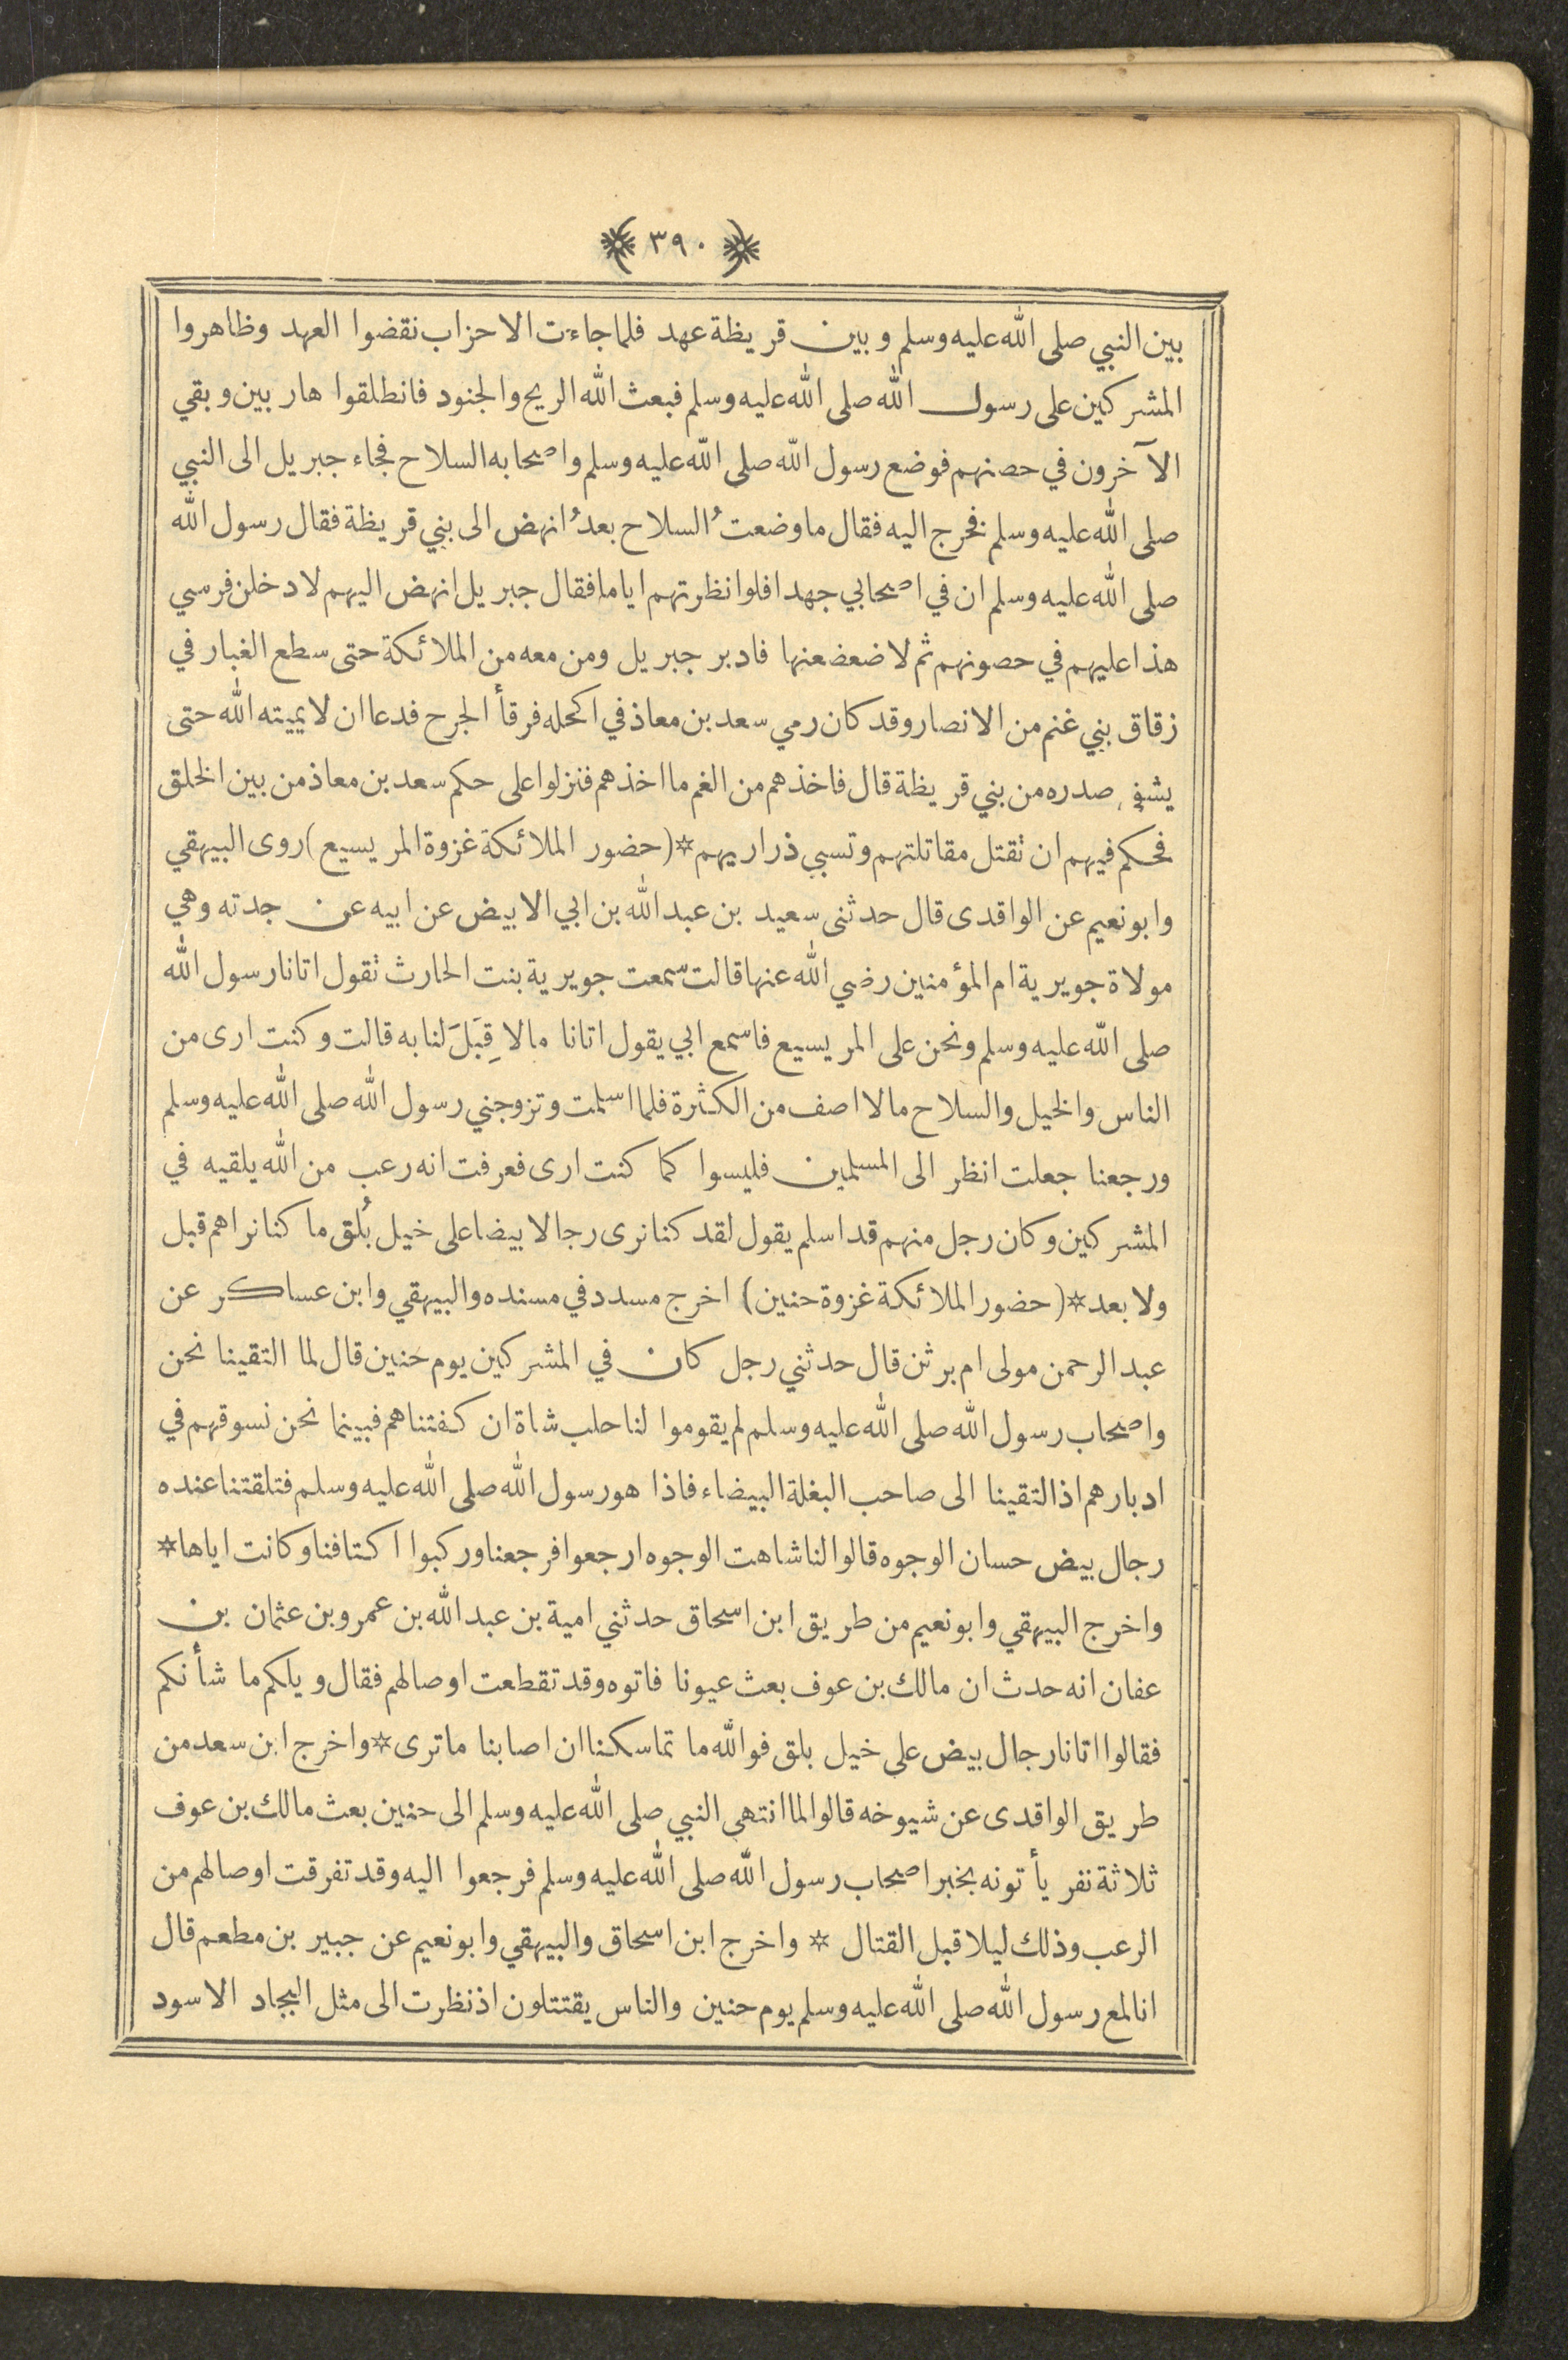 ٣٩٠
بين النبي صلى الله عليه وسلم وبين قريظة عهد فلما جاءت الاحزاب نقضوا العهد وظاهروا
المشركين على رسول الله صلى الله عليه وسلم فبعث الله الريح والجنود فانطلقوا هاربين وبقي
الآخرون في حصنهم فوضع رسول الله صلى الله عليه وسلم واصحابه السلاح فجاء جبريل الى النبي
صلى الله عليه وسلم فخرج اليه فقال ما وضعتُ السلاح بعدُ انهض الى بني قريظة فقال رسول الله
صلى الله عليه وسلم ان في اصحابي جهدا فلو انظرتهم اياما فقال جبريل انهض اليهم لادخلن فرسي
هذا عليهم في حصونهم ثم لاضعضعنها فادبر جبريل ومن معه من الملائكة حتى سطع الغبار في
زقاق بني غنم من الانصار وقد كان رمي سعد بن معاذ في اكحله فرقأ الجرح فدعا ان لا يميته الله حتى
يشفي صدره من بني قريظة قال فاخذهم من الغم ما اخذهم فنزلوا على حكم سعد بن معاذ من بين الخلق
فحكم فيهم ان تقتل مقاتلتهم وتسبي ذراريهم * (حضور الملائكة غزوة المريسيع) روى البيهقي
وابو نعيم عن الواقدى قال حدثنى سعيد بن عبد الله بن ابي الابيض عن ابيه عن جدته وهي
مولاة جويرية ام المؤمنين رضي الله عنها قالت سمعت جويرية بنت الحارث تقول اتانا رسول الله
صلى الله عليه وسلم ونحن على المريسيع فاسمع ابي يقول اتانا مالا قِبَلَ لنا به قالت وكنت ارى من
الناس والخيل والسلاح مالا اصف من الكثرة فلما اسلمت وتزوجني رسول الله صلى الله عليه وسلم
ورجعنا جعلت انظر الى المسلمين فليسوا كما كنت ارى فعرفت انه رعب من الله يلقيه في
المشركين وكان رجل منهم قد اسلم يقول لقد كنا نرى رجالا بيضا على خيل بُلق ما كنا نراهم قبل
ولا بعد * (حضور الملائكة غزوة حنين) اخرج مسدد في مسنده والبيهقي وابن عساكر عن
عبد الرحمن مولى ام برثن قال حدثني رجل كان في المشركين يوم حنين قال لما التقينا نحن
واصحاب رسول الله صلى الله عليه وسلم لم يقوموا لنا حلب شاة ان كفتناهم فبينما نحن نسوقهم في
ادبارهم اذ التقينا الى صاحب البغلة البيضاء فاذا هو رسول الله صلى الله عليه وسلم فتلقتنا عنده
رجال بيض حسان الوجوه قالوا لنا شاهت الوجوه ارجعوا فرجعنا وركبوا اكتافنا وكانت اياها *
واخرج البيهقي وابو نعيم من طريق ابن اسحاق حدثني امية بن عبد الله بن عمرو بن عثمان بن
عفان انه حدث ان مالك بن عوف بعث عيونا فاتوه وقد تقطعت اوصالهم فقال ويلكم ما شأنكم
فقالوا اتانا رجال بيض على خيل بلق فوالله ما تماسكنا ان اصابنا ما ترى * واخرج ابن سعد من
طريق الواقدى عن شيوخه قالوا لما انتهى النبي صلى الله عليه وسلم الى حنين بعث مالك بن عوف
ثلاثة نفر يأتونه بخبر اصحاب رسول الله صلى الله عليه وسلم فرجعوا اليه وقد تفرقت اوصالهم من
الرعب وذلك ليلا قبل القتال * واخرج ابن اسحاق والبيهقي وابو نعيم عن جبير بن مطعم قال
انا لمع رسول الله صلى الله عليه وسلم يوم حنين والناس يقتتلون اذ نظرت الى مثل البجاد الاسود